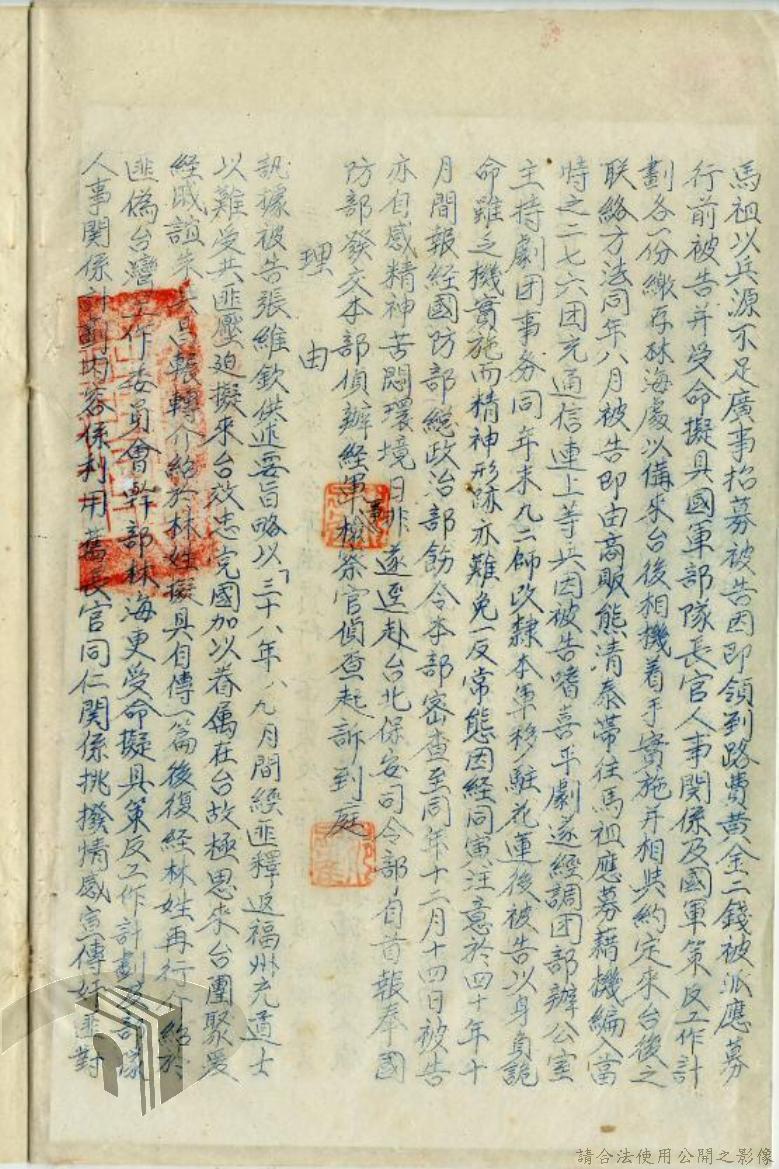 馬祖以兵源不足廣事招募被告因即領到路費黃金二錢被派應募
行前被告并受命擬具國軍部隊長官人事關係及國軍策反工作計
劃各一份繳存林海處以備來台後相機着手實施并相與約定來台後之
联絡方法同年八月被告即由商販熊清泰帶往馬祖應募藉機編入當
時之二七六团充通信連上等兵因被告嗜喜平劇遂經調团部辦公室
主持劇团事务同年末九二師改隸本軍移駐花蓮後被告以身負詭
命雖乏機實施而精神形跡亦難免一反常態因経同憲注意於四十年十
月間報経國防部總政治部飭令本部密查至同年十二月十四日被告
亦自感精神苦悶環境日非遂逕赴台北保安司令部自首報奉國
防部發交本部偵辦経軍事檢察官偵查起訴到庭
理由
訊據被告張維欽供述要旨略以「三十八年八九月間經匪釋返福州充道士
以難受共匪壓迫擬來台效忠党國加以眷属在台故極思來台團聚爰
経戚誼朱 昌輾轉介紹於林姓擬具自傳一篇後復経林姓再行介紹於
匪偽台灣工作委員會幹部林海更受命擬具策反工作計劃及部隊
人事関係計劃內容係利用舊長官同仁関係挑撥情感宣傳奸匪對
請合法使用公開之影像